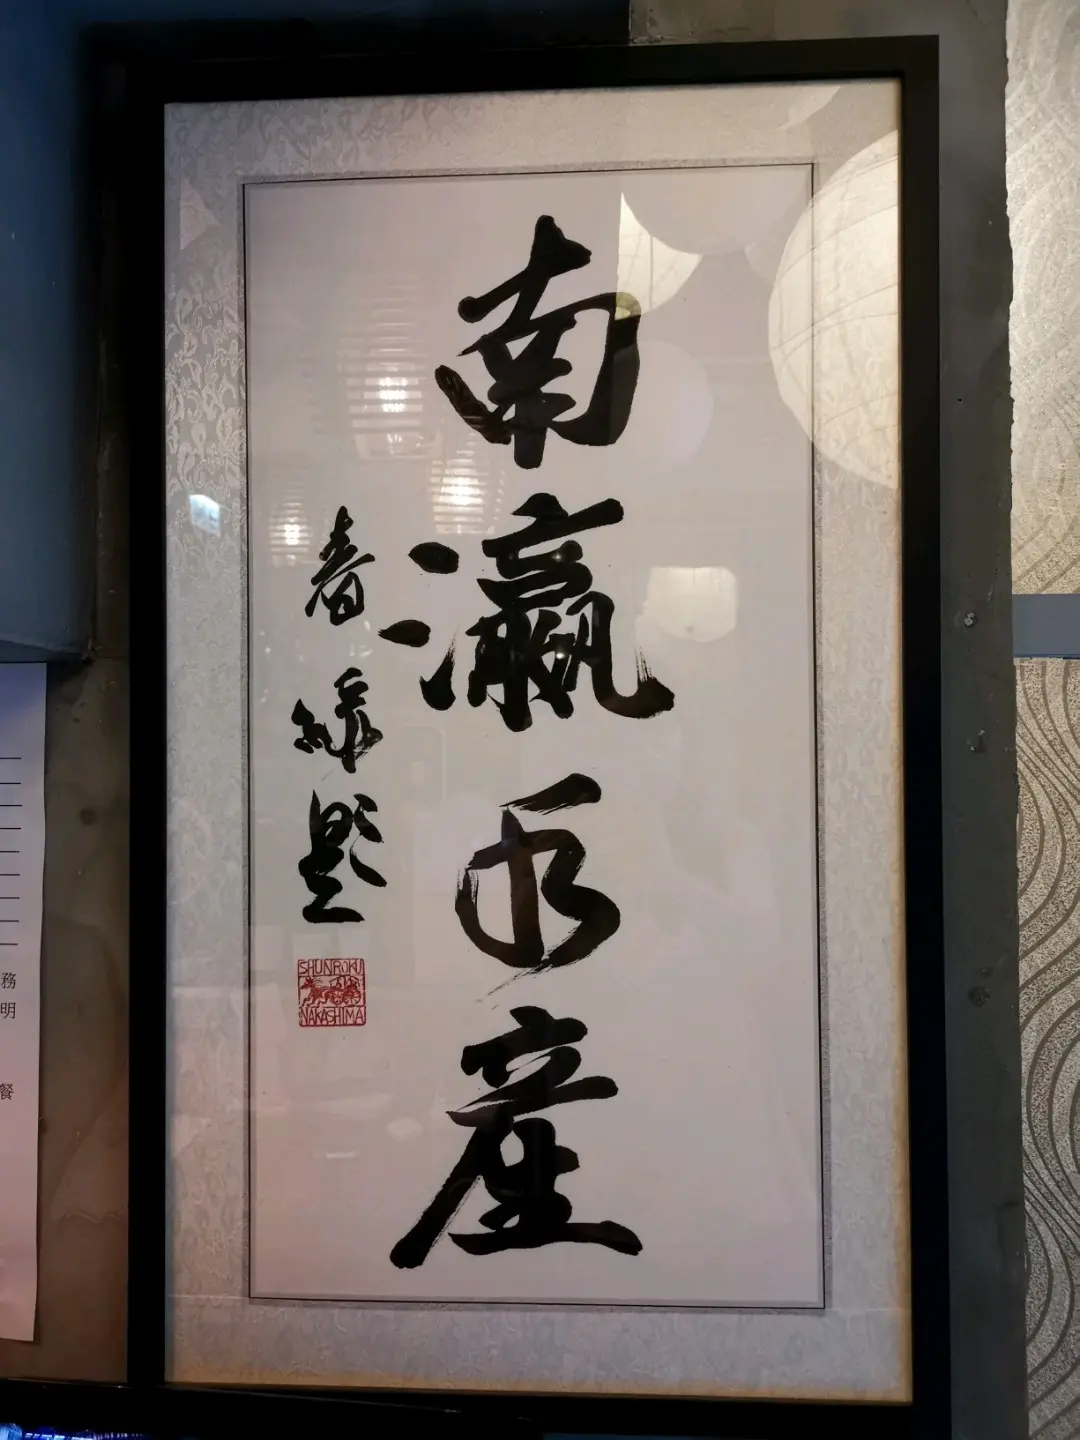 南瀛水産
春緑題
SHUNROKU
NAKASHIMA
務
明
餐